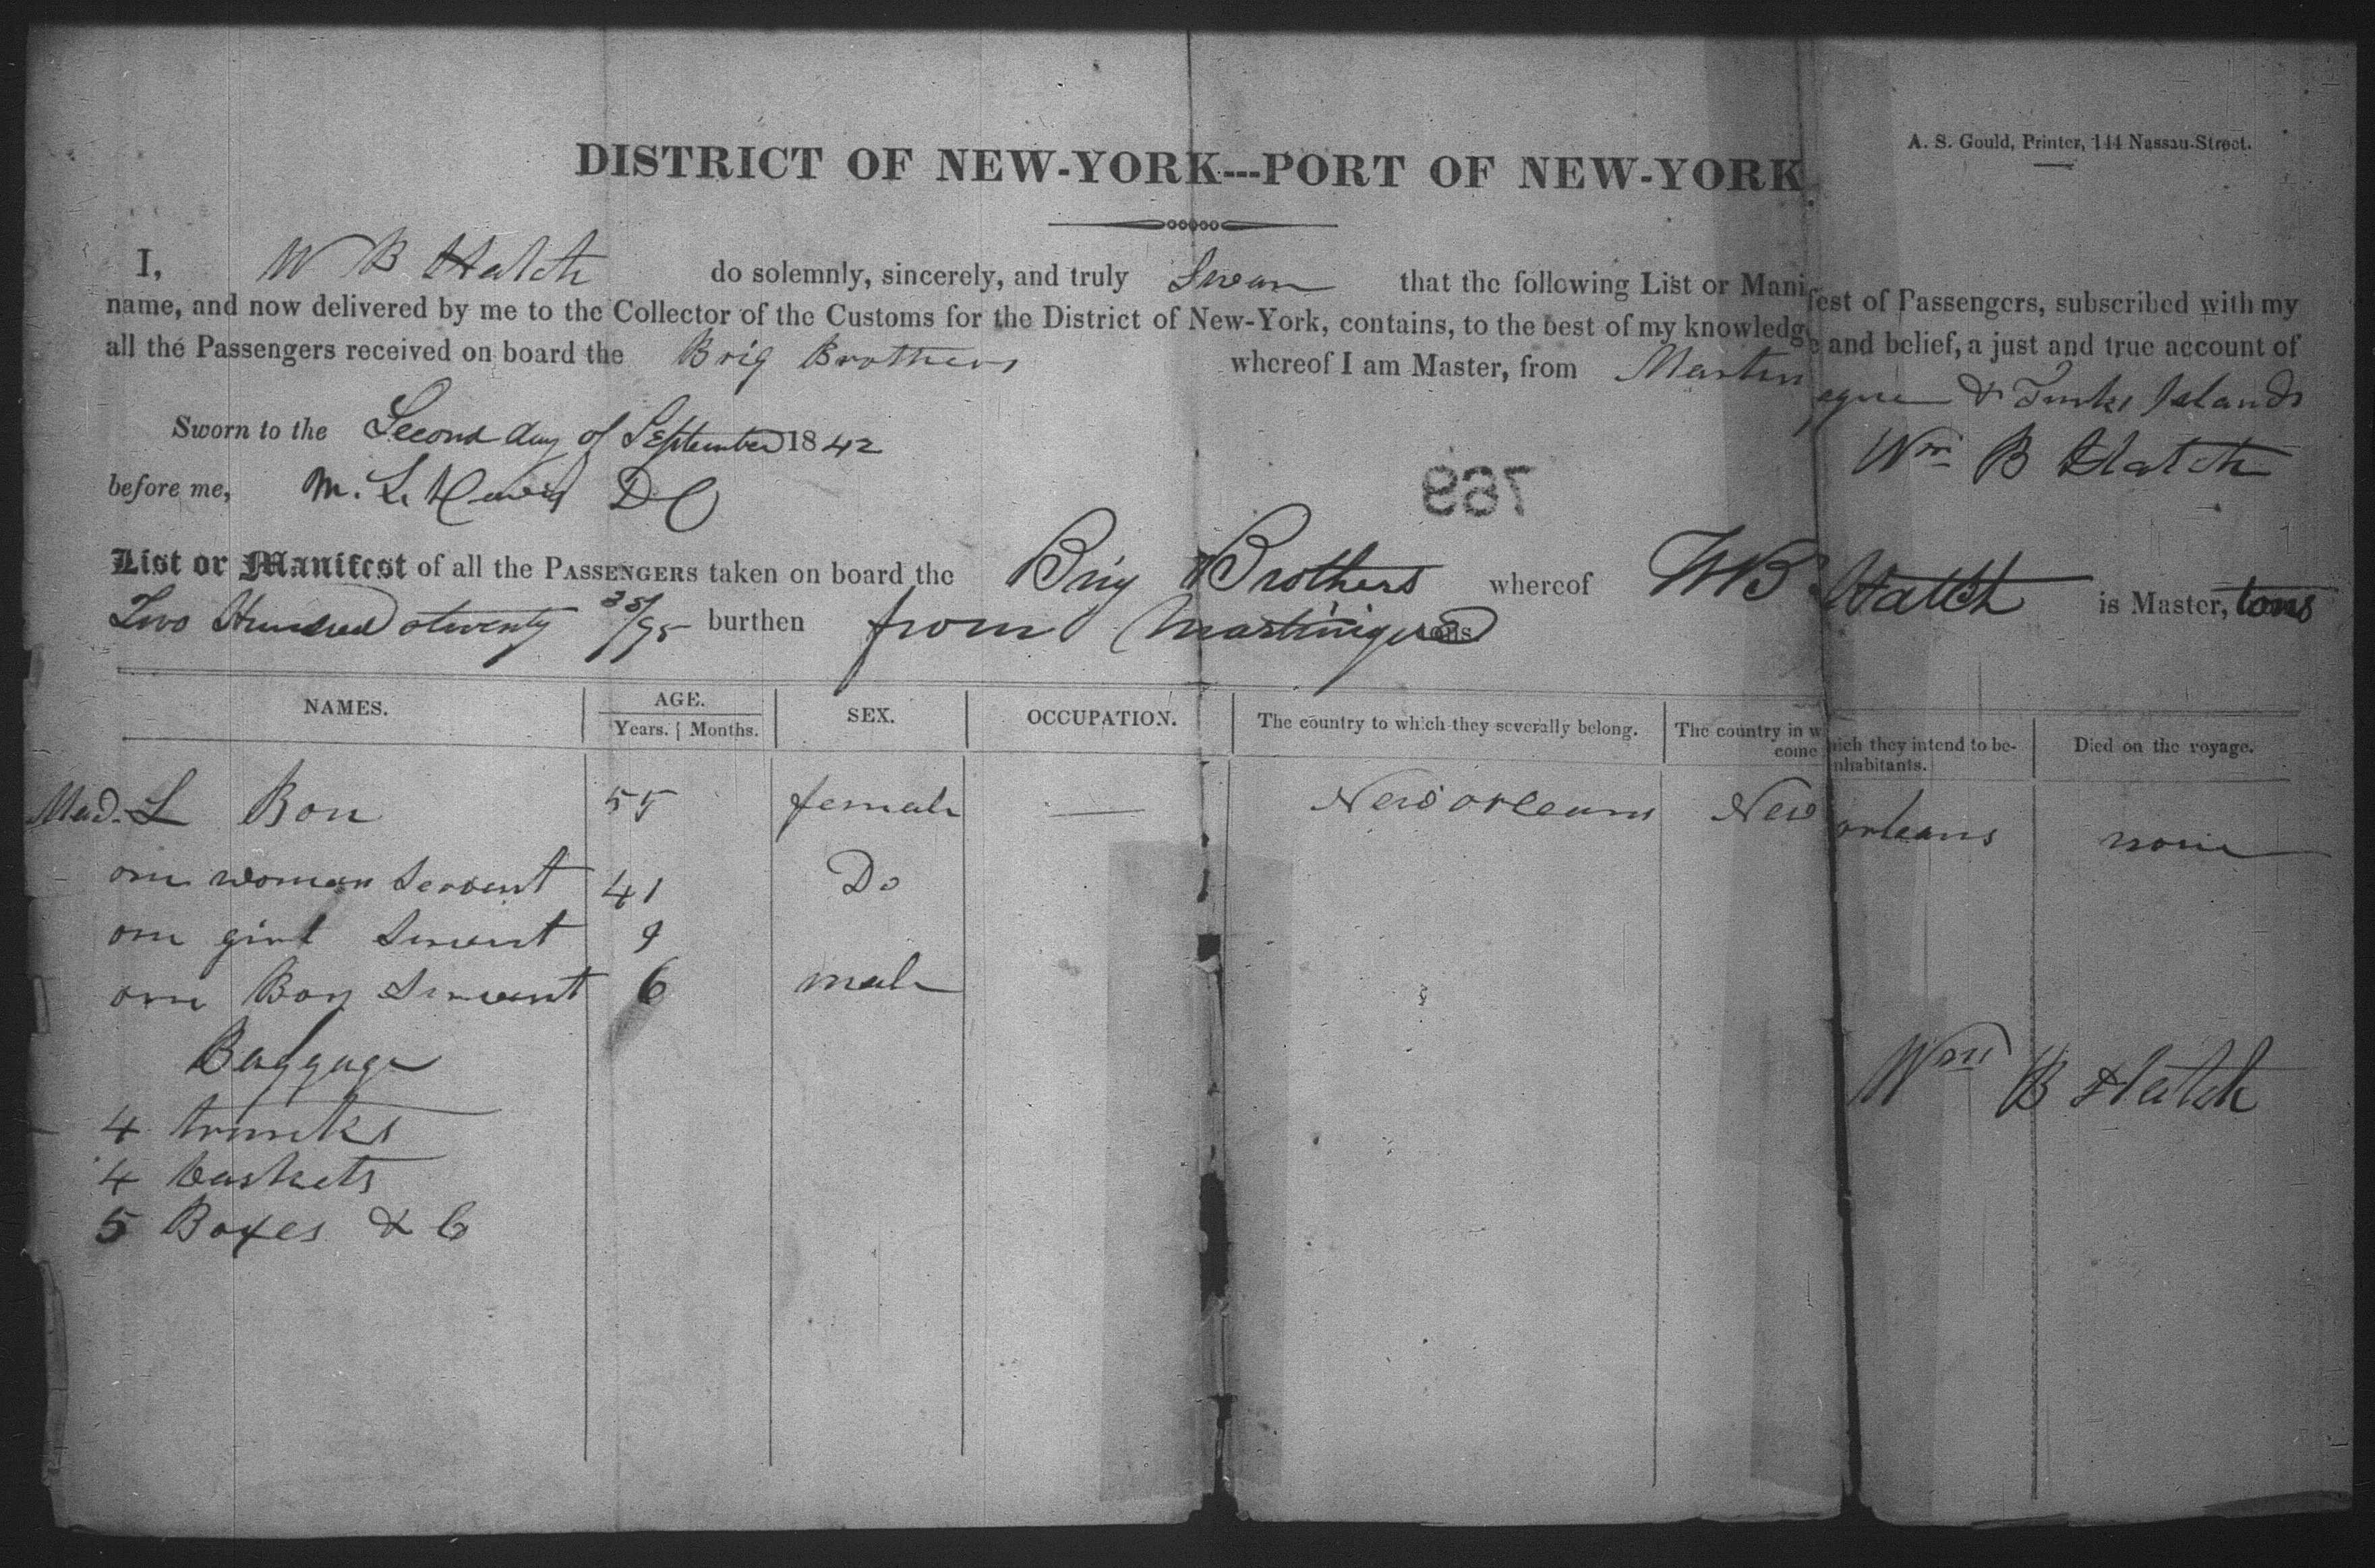 A. S. Gould, Printer, 144 Nassau-Street.
DISTRICT OF NEW-YORK---PORT OF NEW-YORK.
I, W B Hatch do solemnly, sincerely, and truly Swear that the following List or Manifest of Passengers, subscribed with my
name, and now delivered by me to the Collector of the Customs for the District of New-York, contains, to the best of my knowledge and belief, a just and true account of
all the Passengers received on board the Brig Brothers whereof I am Master, from Martinique & Turks Islands
Sworn to the Second day of September 1842
Wm B Hatch
before me, M. L. D C
769
List or Manifest of all the PASSENGERS taken on board the Brig Brothers whereof W B Hatch is Master, tons
Two Hundred & twenty 35/95 burthen from Martinique tons
NAMES. AGE. SEX. OCCUPATION. The country to which they severally belong. The country in which they intend to become inhabitants. Died on the voyage.
Years. Months.
Mad. L Bon 55 female — New orleans New orleans none
one woman Servant 41 Do
one girl Servant 9
one Boy Servant 6 male
Baggage
Wm B Hatch
4 trunks
4 baskets
5 Boxes & C